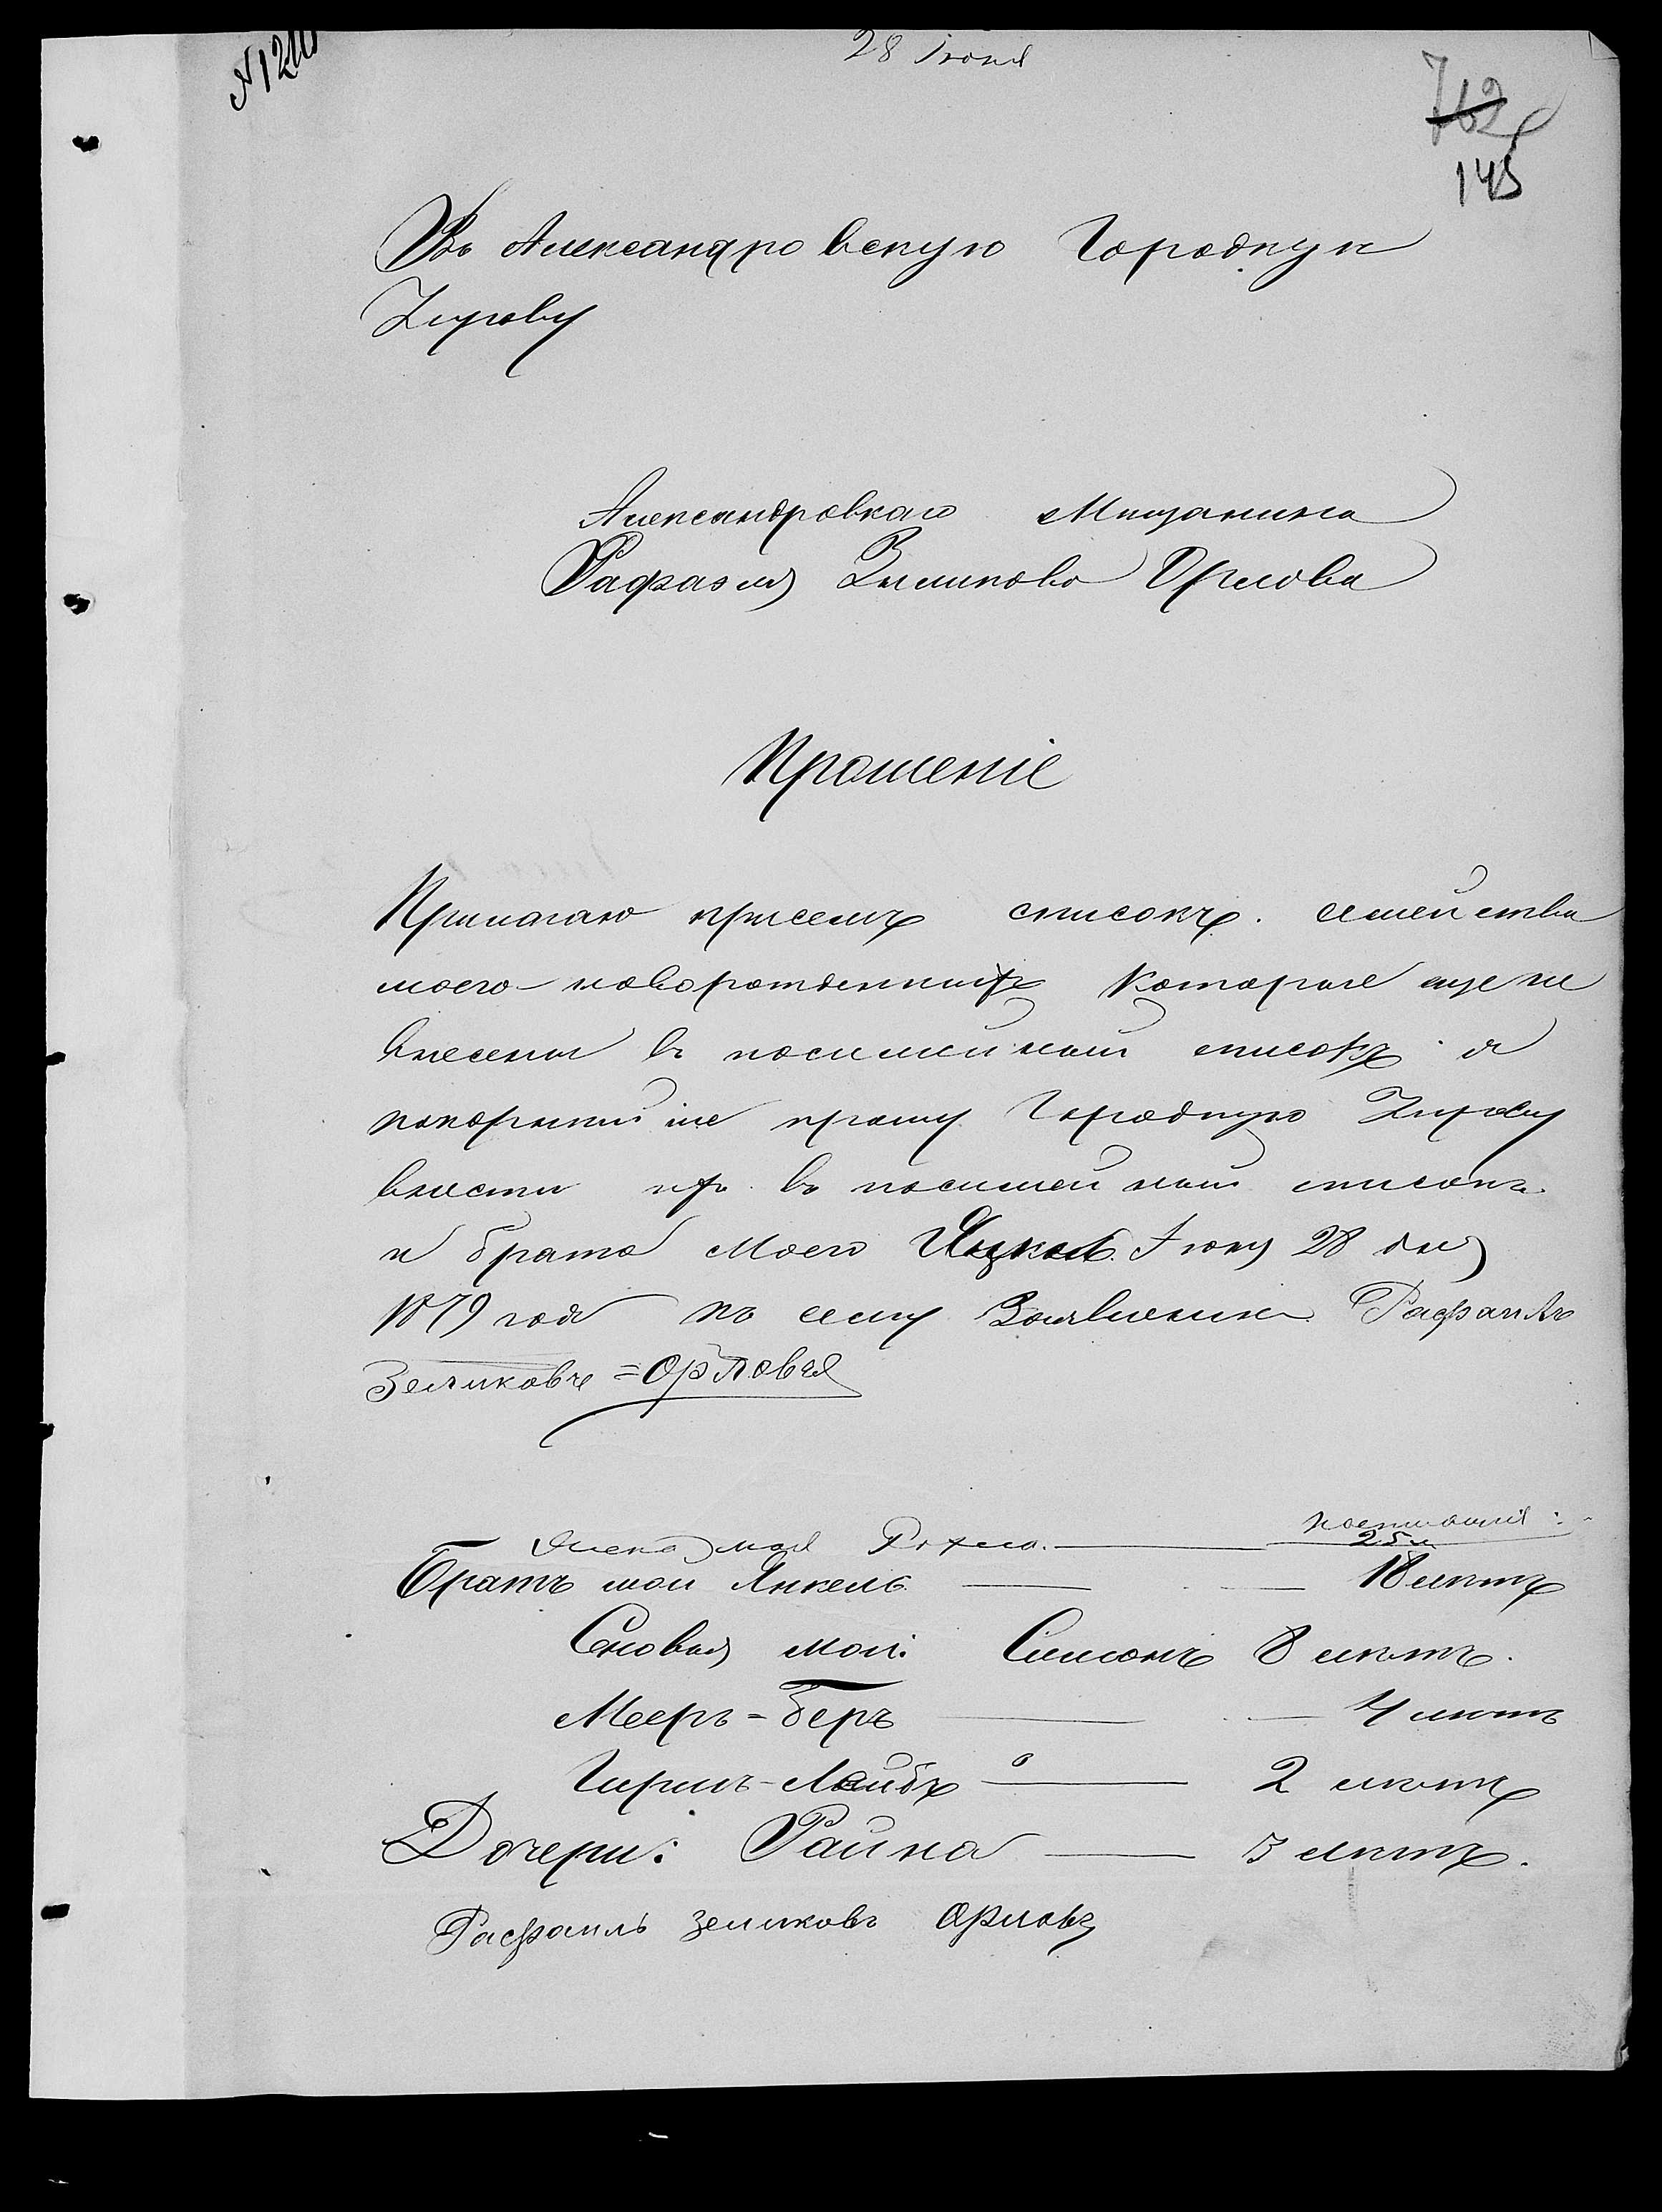 28 Іюня
762
145
Въ Александровскую Городкую
Управу
Александровкаго Мищанина
Рафаэля Зеликова Орлова
Прошеніе
Прилагаю присемъ списокъ семейства
моего новорожденныхъ которые еще не
внесены въ посимейный списокъ и
покорнийше прошу Городкую Управу
внести ихъ въ посимейный списокъ
и брата моего Янкеля Іюня 28 дня
1879 года къ сему Заявлению Рафаилъ
Зеликовъ = Орловъ
Жена моя Рохля 25 л.
Братъ мой Янкель 18 летъ
Сыновья мои: Симонъ 8 летъ.
Мееръ-Беръ 4 летъ
Гиршъ-Лейбъ 2 летъ
Дочери: Райна 3 летъ.
Рафаилъ Зеликовъ Орловъ